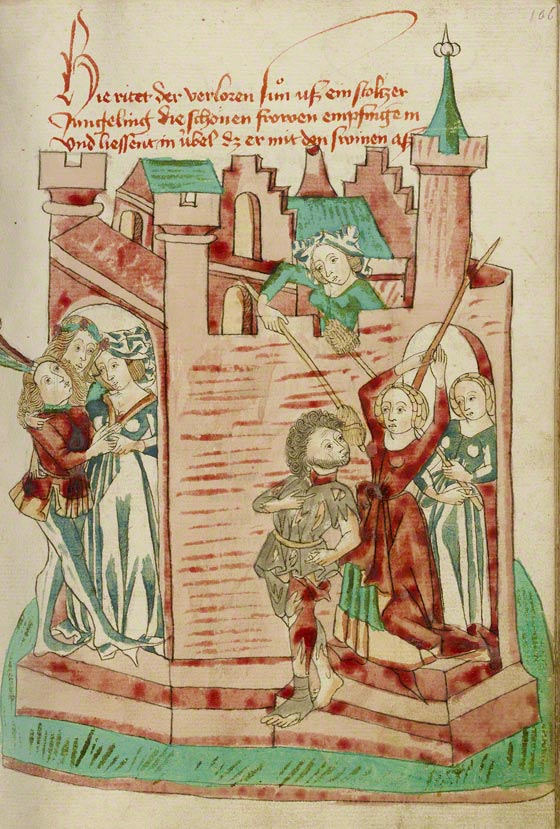 106
Hie ritet der verloren sůn uß ein stoltzer
Jungeling die schönen frowen empfingen in
Und liessent in übel dz er mit den swinen aß